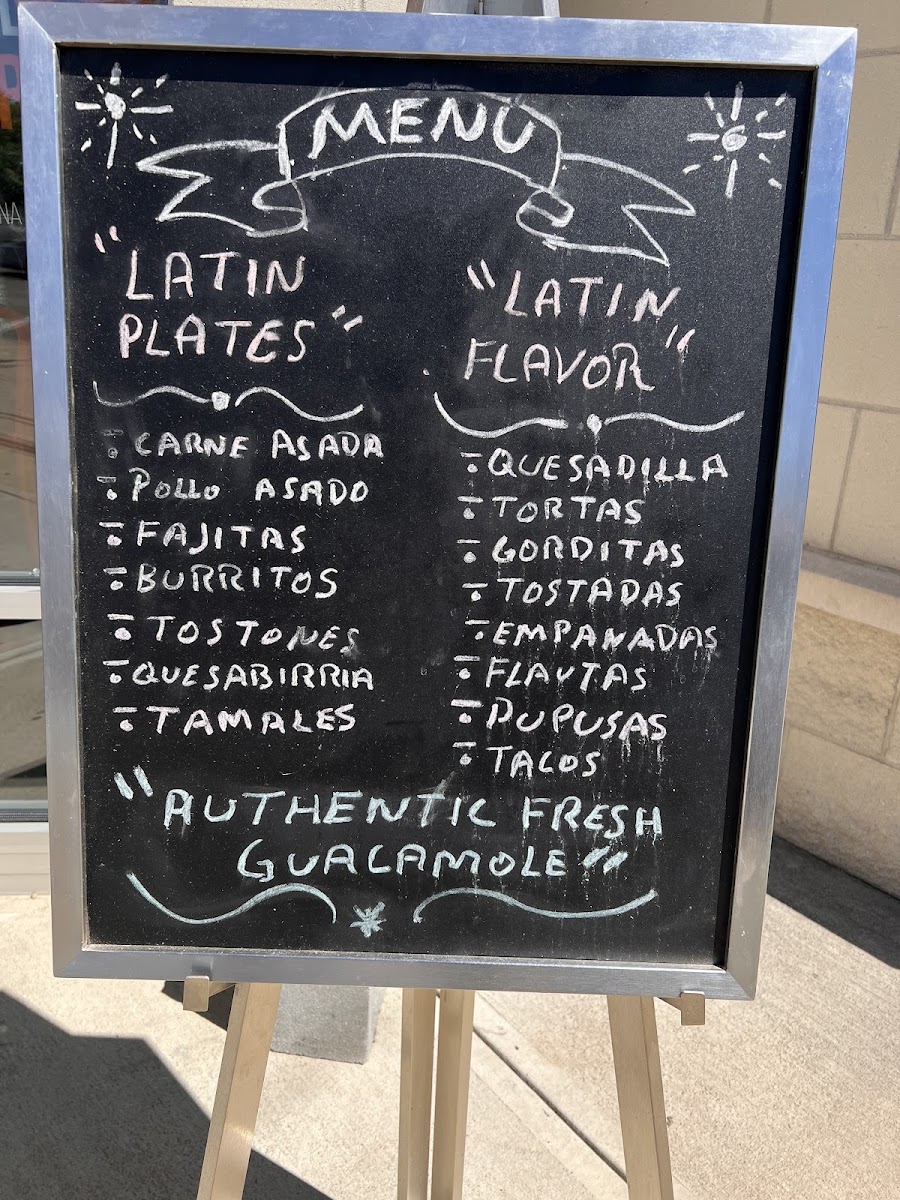 MENU
"LATIN
PLATES"
CARNE ASADA
POLLO ASADO
FAJITAS
BURRITOS
TOSTONES
QUESABIRRIA
TAMALES
"LATIN
FLAVOR"
QUESADILLA
TORTAS
GORDITAS
TOSTADAS
EMPANADAS
FLAUTAS
PUPUSAS
TACOS
"AUTHENTIC FRESH
GUACAMOLE"